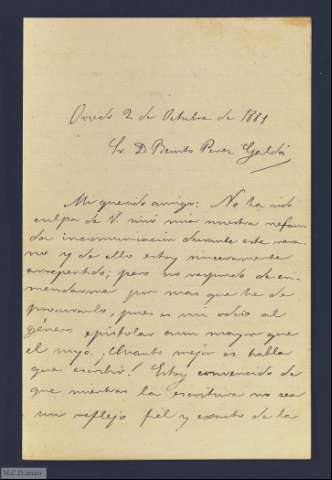 Oviedo 2 de Octubre de 1881
Sr. D Benito Perez Galdós
Mi querido amigo: No ha sido
culpa de V. sinó mia nuestra
incomunicacion durante este vera-
no y de ello estoy sinceramente
arrepentido; pero no respondo de en-
mendarme por mas que he de
procurarlo, pues es mi odio al
género epistolar aun mayor que
el suyo. ¡Cuanto mejor es hablar
que escribir! Estoy convencido de
que mientras la escritura no sea
un reflejo fiel y exacto de la